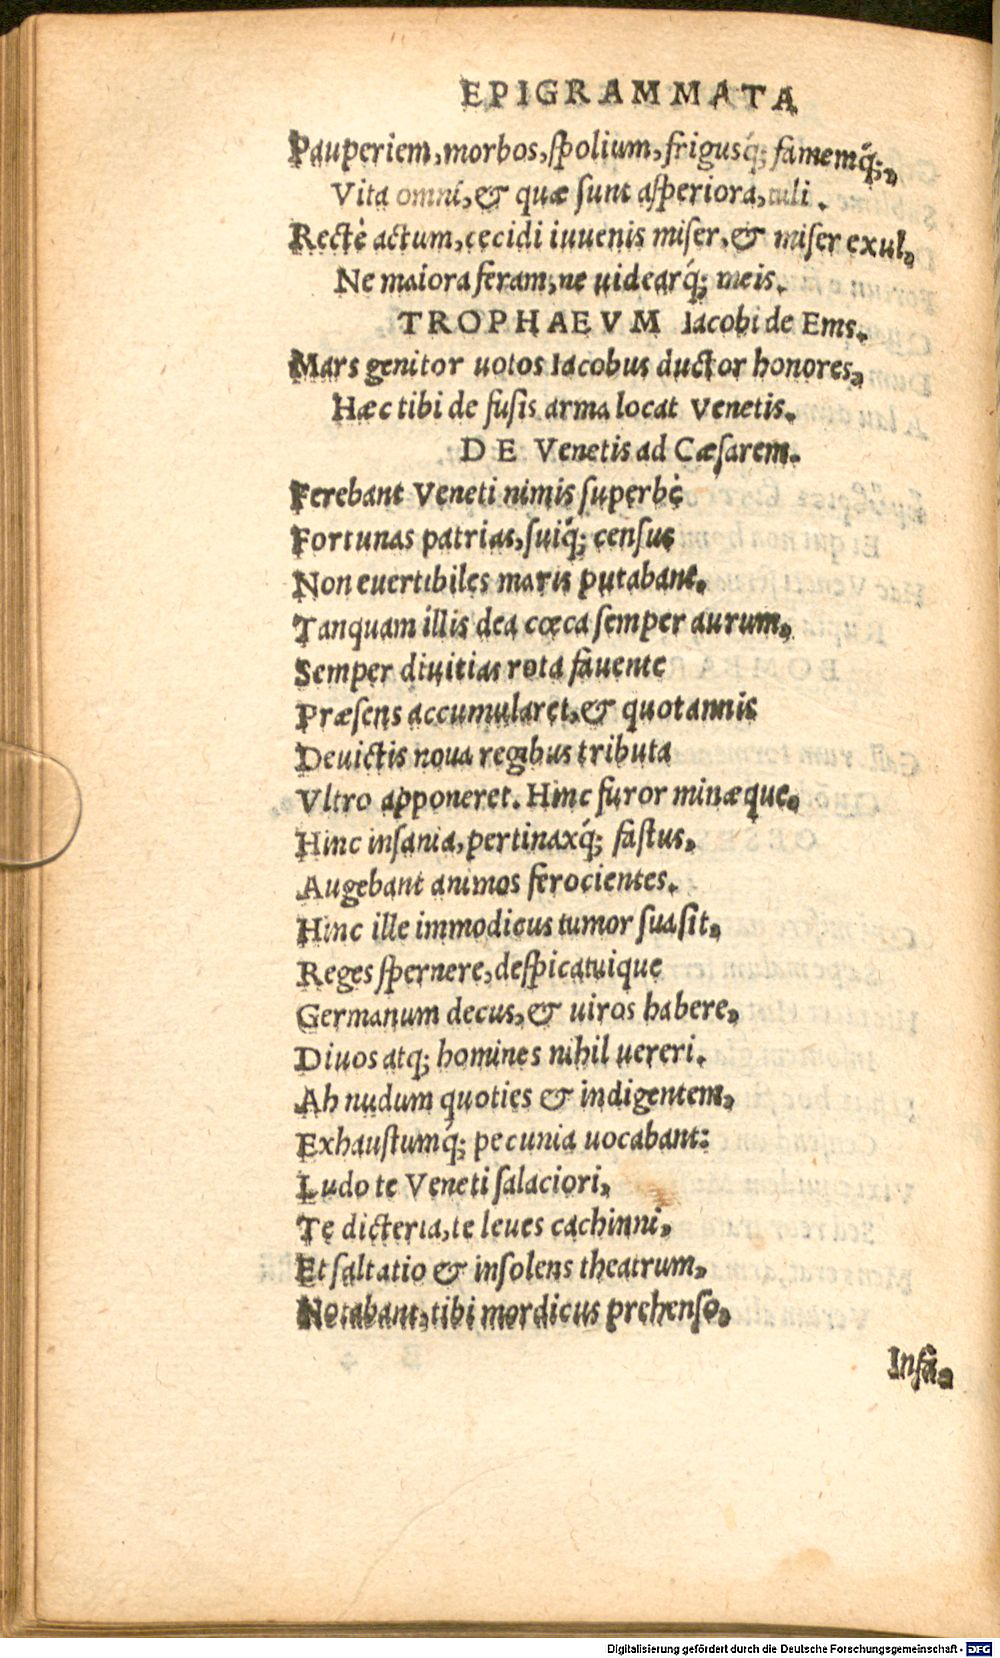 EPIGRAMMATA
Pauperiem, morbos, ſpolium, frigusq́; famemq́;,
Vita omni, & quæ ſunt aſperiora, tuli.
Rectè actum, cecidi iuuenis miſer, & miſer exul,
Ne maiora feram, ne uidearq́; meis.
TROPHAEVM Iacobi de Ems.
Mars genitor uotos Iacobus ductor honores,
Hæc tibi de fuſis arma locat Venetis.
DE Venetis ad Cæſarem.
Ferebant Veneti nimis ſuperbè
Fortunas patrias, ſuiq́; cenſus
Non euertibiles maris putabant.
Tanquam illis dea cœca ſemper aurum,
Semper diuitias rota fauente
Præſens accumularet, & quotannis
Deuictis noua regibus tributa
Vltro apponeret. Hinc furor minæque,
Hinc inſania, pertinaxq́; faſtus,
Augebant animos ferocientes.
Hinc ille immodicus tumor ſuaſit,
Reges ſpernere, deſpicatuique
Germanum decus, & uiros habere,
Diuos atq; homines nihil uereri.
Ah nudum quoties & indigentem,
Exhauſtumq́; pecunia uocabant:
Ludo te Veneti ſalaciori,
Te dicteria, te leues cachinni,
Et ſaltatio & inſolens theatrum,
Notabant, tibi mordicus prehenſo,
Inſã,
Digitalisierung gefördert durch die Deutsche Forschungsgemeinschaft - DFG